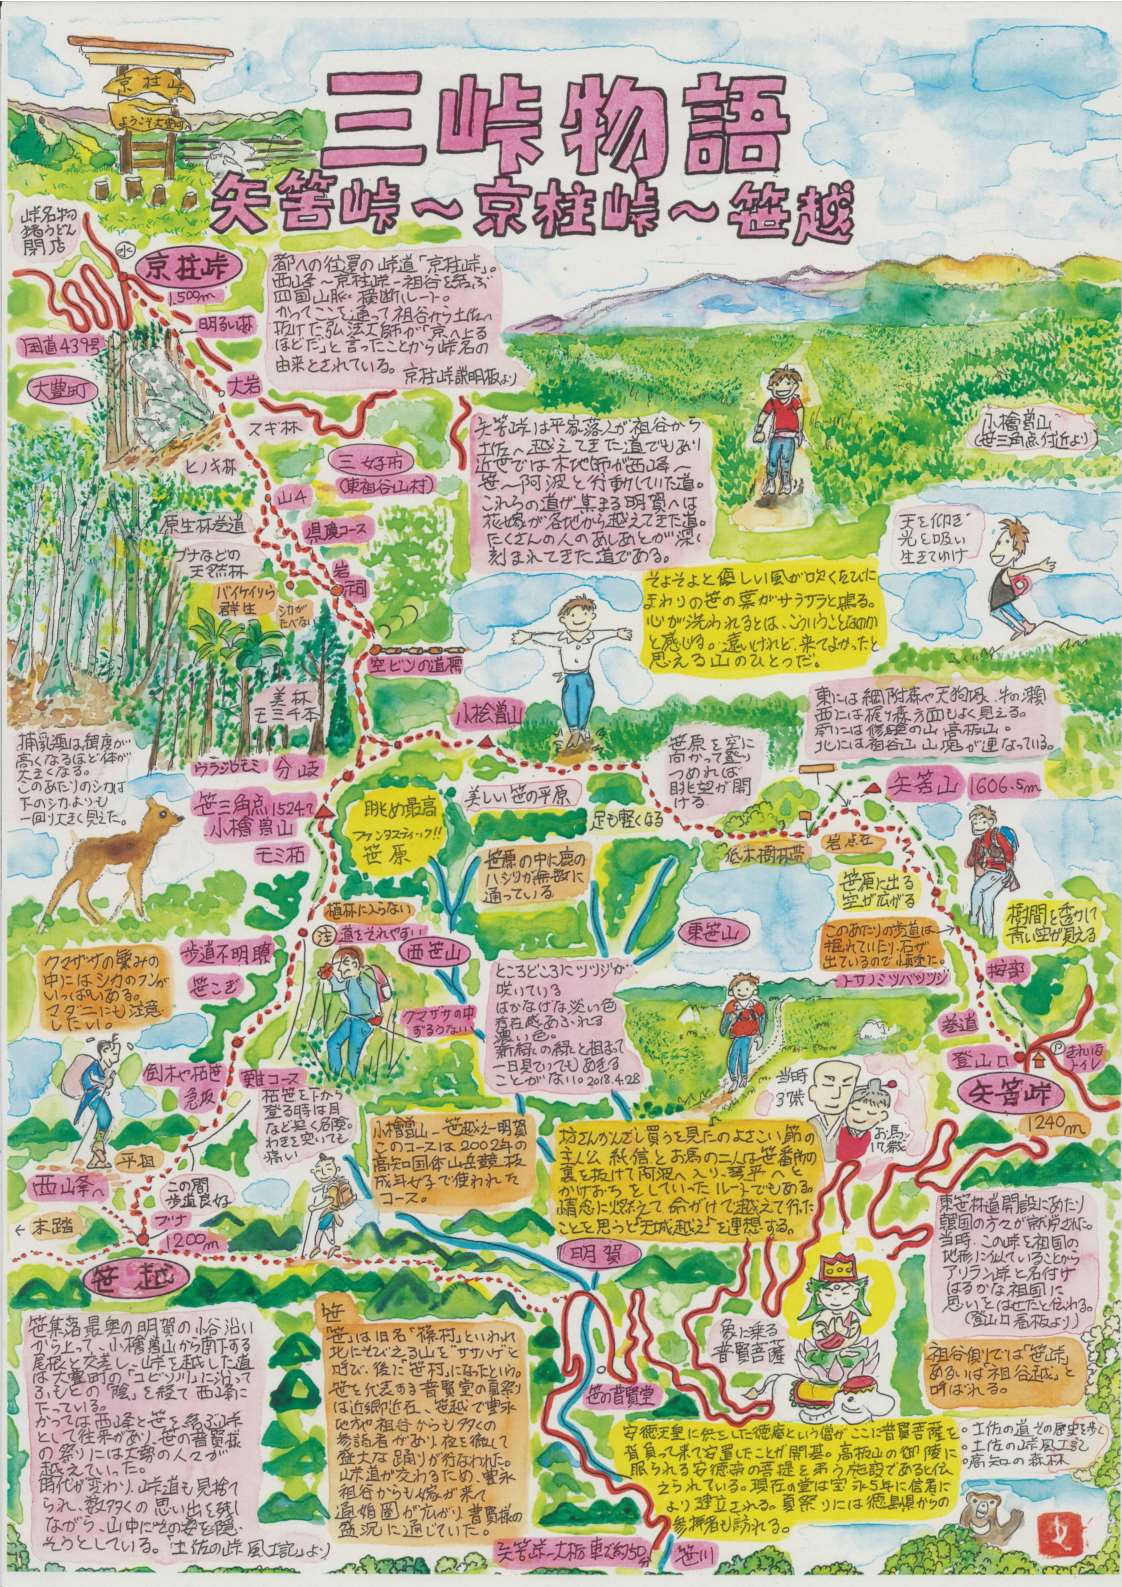 三峠物語
矢筈峠～京柱峠～笹越
京柱峠
ようこそ大豊町へ
峠名物
猪うどん
閉店
水
京柱峠
1,500m
明るい林
国道439号
大豊町
大岩
スギ林
ヒノキ林
三好市
(東祖谷山村)
山4
原生林巻道
県境コース
ブナなどの
天然林
岩
祠
バイケイソウ
群生
シカが
たべない
空ビンの道標
美林
モミ千本
ウラジロモミ
分岐
都への往還の峠道「京柱峠」。
西峰～京柱峠～祖谷を結ぶ
四国山脈横断ルート。
かつてここを通って祖谷から土佐へ
抜けた弘法大師が「京へ上る
ほどだ」と言ったことから峠名の
由来とされている。 京柱峠説明板より
矢筈峠は平家落人が祖谷から
土佐へ越えてきた道でもあり
近世では木地師が西峰～
笹～阿波と行動していた道。
これらの道が集まる明賀へは
花嫁が各地から越えてきた道。
たくさんの人のあしあとが深く
刻まれてきた道である。
小檜曽山
(笹三角点付近より)
天を仰ぎ
光を吸い
生きてゆけ
そよそよと優しい風が吹くたびに
まわりの笹の葉がサラサラと鳴る。
心が洗われるとは、こういうことなのか
と感じる。遠いけれど、来てよかったと
思える山のひとつだ。
東には綱附森や天狗塚、牛の瀬
西には梶ヶ森方面もよく見える。
南には修験の山高板山。
北には祖谷山山塊が連なっている。
小桧曽山
笹原を空に
向かって登り
つめれば
眺望が開
ける
矢筈山 1606.5m
哺乳類は緯度が
高くなるほど体が
大きくなる。
このあたりのシカは
下のシカよりも
一回り大きく見えた。
笹三角点 1524.7
小檜曽山
モミ柘
眺め最高
ファンタスティック!!
笹原
美しい笹の平原
足も軽くなる
笹原の中に鹿の
ハシリが無数に
通っている
低木樹林帯
岩点在
笹原に出る
空が広がる
このあたりの歩道は
掘れていたり石が
出ているので慎重に。
トサノミツバツツジ
樹間を透かして
青い空が見える
植林に入らない
注 道をそれやすい
西笹山
東笹山
クマザサの繁みの
中にはシカのフンが
いっぱいある。
マダニにも注意
したい。
歩道不明瞭
笹こぎ
クマザサの中
ずるりない
ところどころにツツジが
咲いている
はかなげな淡い色
存在感あふれる
濃い色。
新緑の緑と相まって
一日見ていてもあきる
ことがない。2018.4.28
鞍部
巻道
登山口
P
きれいな
トイレ
矢筈峠
1240m
倒木や枯世
急坂
難コース
枯笹を下から
登る時は目
など突く危険。
わきを突いても
痛い
平担
西峰へ
この間
歩道良好
ブナ
1200m
← 未踏
笹越
小檜曽山～笹越え～明賀
このコースは2002年の
高知国体山岳競技
成年女子で使われた
コース。
当時
37歳
お馬
17歳
坊さんかんざし買うを見たのよさこい節の
主人公、純信とお馬の二人は笹番所の
裏を抜けて阿波へ入り、琴平へと
かけおちをしていったルートでもある。
情念に燃えて命がけで越えて行った
ことを思うと「天城越え」を連想する。
明賀
東笹林道開設にあたり
韓国の方々が就労された。
当時、この峠を祖国の
地形に似ていることから
アリラン峠と名付け
はるかな祖国に
思いをはせたと伝わる。
(登山口看板より)
祖谷側では「笹峠」
あるいは「祖谷越」と
呼ばれる。
象に乗る
普賢菩薩
笹の普賢堂
笹集落最奥の明賀の小谷沿い
から上って、小檜曽山から南下する
尾根と交差し、峠を越した道
は大豊町の「ユビソノ」に沿って
ふもとの「陰」を経て西峰に
至っている。
かつては西峰と笹を結ぶ峠
として往来があり、笹の普賢様
の祭りには大勢の人々が
越えていった。
時代が変わり、峠道も見捨て
られ、数多くの思い出を残し
ながら、山中にその姿を隠
そうとしている。「土佐の峠風土記」より
笹
「笹」は旧名「篠村」といわれ
北にそびえる山を“ササハゲ”と
呼び、後に「笹村」になったという。
笹を代表する普賢堂の夏祭り
は近郷近在、笹越で豊永
地方や祖谷からも多くの
参詣者があり、夜を徹して
盛大な踊りが行なわれた。
山峠道が交わるため、豊永
祖谷からも嫁が来て
通婚圏が広がり、普賢様の
盛況に通じていた。
安徳天皇に供をした徳庵という僧がここに普賢菩薩を
背負って来て安置したことが開基。高板山の御陵に
眠られる安徳帝の菩提を弔う施設であると伝
えられている。現在の堂は宝永5年に信者に
より建立される。夏祭りには徳島県からの
参拝者も訪れる。
。土佐の道 その歴史を歩く
。土佐の峠風土記
。高知の森林
矢筈峠～大栃 車で約50分
笹川